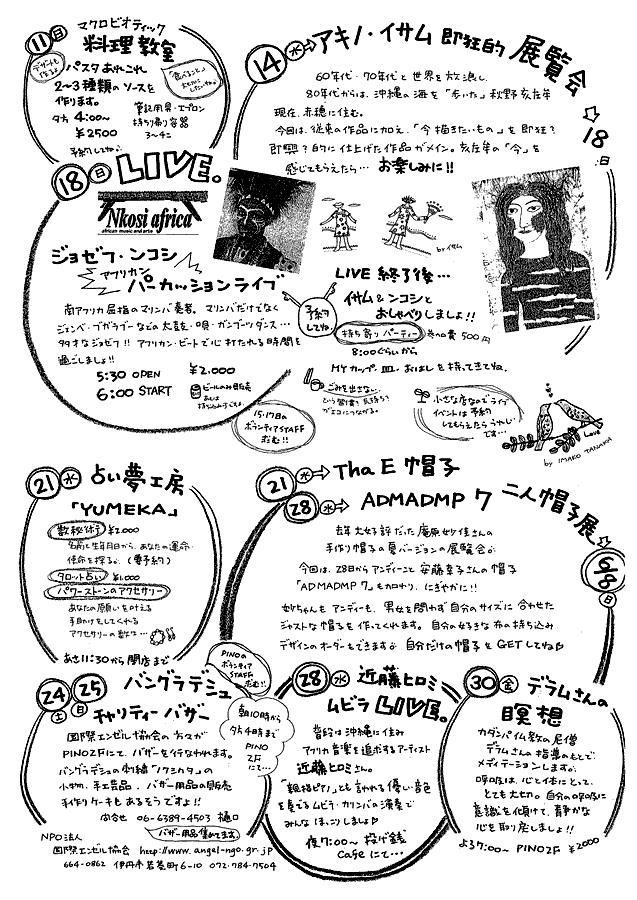 11 日
マクロビオティック
料理教室
デザートも作るよ
パスタあれこれ
2〜3種類のソースを
作ります。
夕方 4:00〜
¥2500
予約してね
筆記用具・エプロン
持ち帰り容器
14 水 → アキノ・イサム 即狂的 展覧会
18 日
60年代・70年代と世界を放浪し
80年代からは、沖縄の海を「歩いた」秋野亥左牟
現在、赤穂に住む。
今回は、従来の作品に加え、「今描きたいもの」を即狂?
即興?的に仕上げた作品がメイン。亥左牟の「今」を
感じてもらえたら… お楽しみに!!
18 日 LIVE。
Nkosi africa
african music and arts
ジョゼフ・ンコシ
アフリカン
パーカッションライブ
南アフリカ屈指のマリンバ奏者。マリンバだけでなく
ジェンベ・ブガラブーなどの太鼓・唄・ガンブーツダンス…
多才なジョゼフ!! アフリカン・ビートで心打たれる時間を
過ごしましょ!!
5:30 OPEN
6:00 START
¥2.000
by イサム
LIVE 終了後…
予約してね
イサム&ンコシと
おしゃべりしましょ!!
持ち寄りパーティー 参加費 500円
8:00ぐらいから
MYカップ・皿・おはしを持ってきてね。
15・17日の
ボランティアSTAFF
求む!!
ごみを出さない
小さな店なのでライブ
イベントは予約
してもらえたらうれしい
です…
Love
by IMAKO TANAKA
21 水 占い夢工房
「YUMEKA」
数秘術 ¥2.000
名前と生年月日から、あなたの運命・
使命を探る (要予約)
タロット占い ¥1.000
パワーストーンのアクセサリー
あなたの願いを叶える
手助けをしてくれる
アクセサリーの数々…
あさ11:30から閉店まで
21 水 → Tha E 帽子
28 水 → ADMADMP 7 二人帽子展
6/8 日
去年大好評だった庵原妙佳さんの
手作り帽子の夏バージョンの展覧会
今回は、28日からアンディーこと安藤幸子さんの帽子
「ADMADMP 7」も加わり、にぎやかに!!
妙ちゃんも アンディーも、男女を問わず自分のサイズに合わせた
ジャストな帽子を作ってくれます。自分の好きな布の持ち込み
デザインのオーダーもできます 自分だけの帽子をGETしてね
PINOの
ボランティア
STAFF
求む!!
24 土 25 日 バングラデシュ
チャリティーバザー
朝10時から
夕方4時まで
PINO
2Fにて…
国際エンゼル協会の方々が
PINO2Fにて、バザーを行なわれます。
バングラデシュの刺繍「ノクシカタ」の
小物、手工芸品、バザー用品の販売
手作りケーキもあるそうですよ!!
問合せ 06-6389-4503 樋口
バザー用品集めてます
NPO法人
国際エンゼル協会 http://www.angel-ngo.gr.jp
664-0862 伊丹市若菱町6-10 072-784-7504
28 水 近藤ヒロミ
ムビラ LIVE。
普段は沖縄に住み
アフリカ音楽を追求するアーティスト
近藤ヒロミさん。
「親指ピアノ」とも言われる優しい音色
を奏でるムビラ・カリンバの演奏で
みんなほっこりしましょ
夜7:00〜 投げ銭
Cafeにて…
30 金 デラムさんの
瞑想
カダンパ仏教の尼僧
デラムさんの指導のもとで
メディテーションします
呼吸は、心と体にとって、
とても大切。自分の呼吸に
意識を傾けて、静かな
心を取り戻しましょ!!
よる7:00〜 PINO2F ¥2000